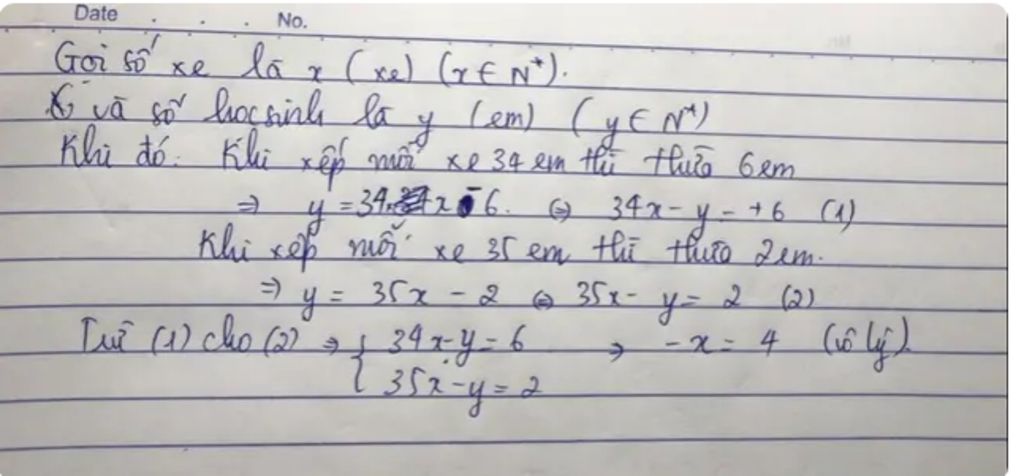 Date . . . No.
Gọi số xe là x (xe) (x ∈ N*).
và số học sinh là y (em) (y ∈ N*)
Khi đó. Khi xếp mỗi xe 34 em thì thừa 6 em
⇒ y = 34x - 6. ⇔ 34x - y = +6 (1)
Khi xếp mỗi xe 35 em thì thừa 2 em.
⇒ y = 35x - 2 ⇔ 35x - y = 2 (2)
Trừ (1) cho (2) ⇒ { 34x - y = 6 ⇒ -x = 4 (vô lý)
35x - y = 2